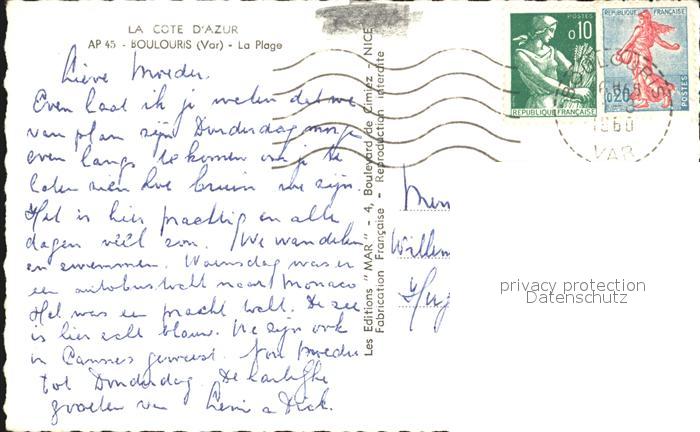 LA COTE D'AZUR
AP 45 - BOULOURIS (Var) - La Plage
Lieve Moeder.
Even laat ik je weten dat we
van plan zijn Donderdag
even langs te komen om je te
laten zien hoe bruin we zijn.
Het is hier prachtig en alle
dagen véél zon. We wandelen
en zwemmen. Woensdag was er
een autobustocht naar Monaco
Het was een pracht tocht. De zee
is hier echt blauw. We zijn ook
in Cannes geweest. Moeder
tot Donderdag. De hartelijke
groeten van en Dick.
Les Editions "MAR" - 4, Boulevard de Cimiez - NICE
Fabrication Française - Reproduction interdite
POSTES
0,10
REPUBLIQUE FRANÇAISE
REPUBLIQUE FRANÇAISE
0,20
POSTES
BOULOURIS
1960
VAR
Willem
privacy protection
Datenschutz